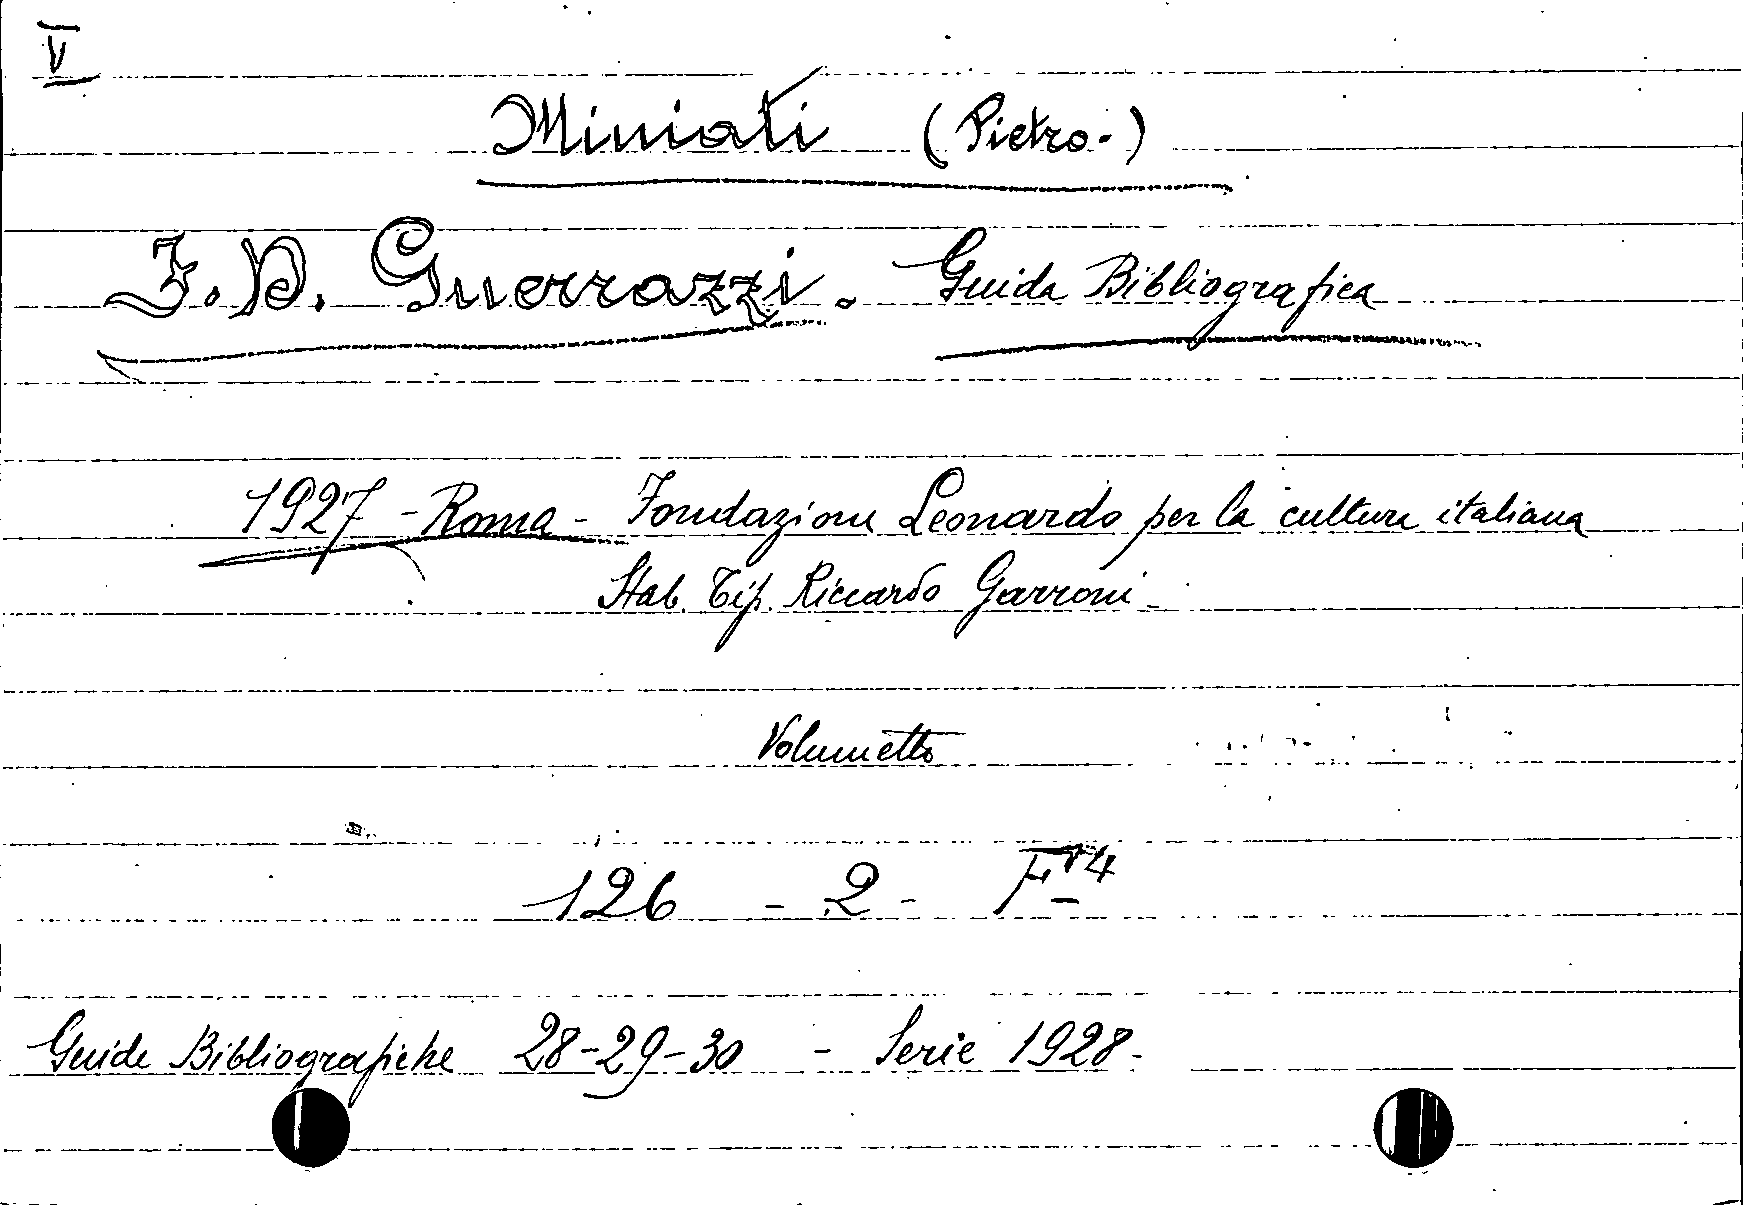 V
Miniati (Pietro.)
F. D. Guerrazzi. Guida Bibliografica
1927 - Roma - Fondazione Leonardo per la cultura italiana
Stab. Tip. Riccardo Garroni -
Volumetto
126 - 2 -
Guide Bibliografiche 28-29-30 - Serie 1928-